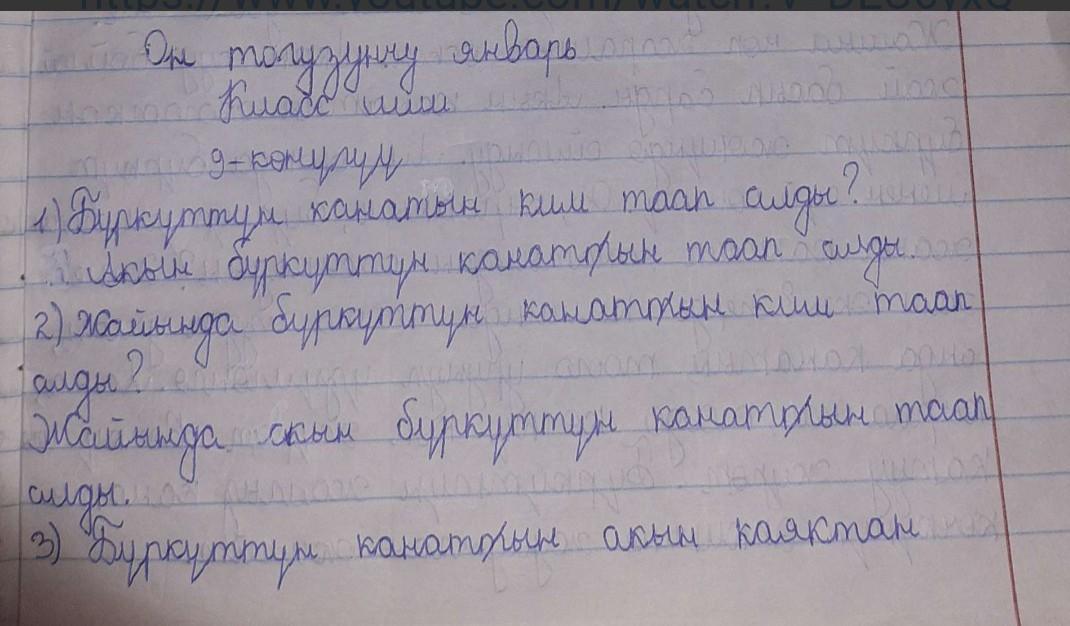 https://www.youtube.com/watch?v=
Он тогузунчу январь
Класс иши
9-көнүгүү
1) Бүркүттүн канатын ким таап алды?
Акын бүркүттүн канатын таап алды.
2) Жайында бүркүттүн канатын ким таап
алды?
Жайында акын бүркүттүн канатын таап
алды.
3) Бүркүттүн канатын акын каяктан